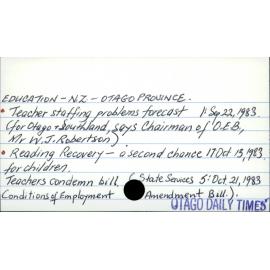 EDUCATION - N.Z. - OTAGO PROVINCE.
• Teacher staffing problems forecast 1: Sep 22, 1983
(for Otago & Southland, says Chairman of O.E.B,
Mr W.J. Robertson)
• Reading Recovery - a second chance 17: Oct 13, 1983
for children.
Teachers condemn bill. (State Services 5: Oct. 21, 1983
Conditions of Employment Amendment Bill.).
OTAGO DAILY TIMES